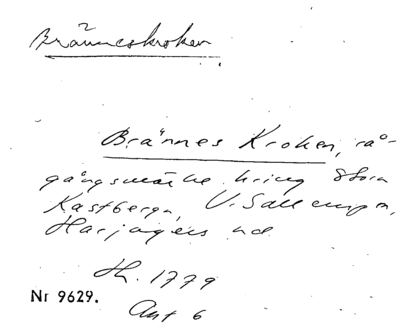 Bränneskroken
Brännes Kroken, rå-
gångsmärke kring Stora
Kastberga, V. Sallerups s,
Harjagers hd
Th. 1779
Nr 9629.
Akt 6